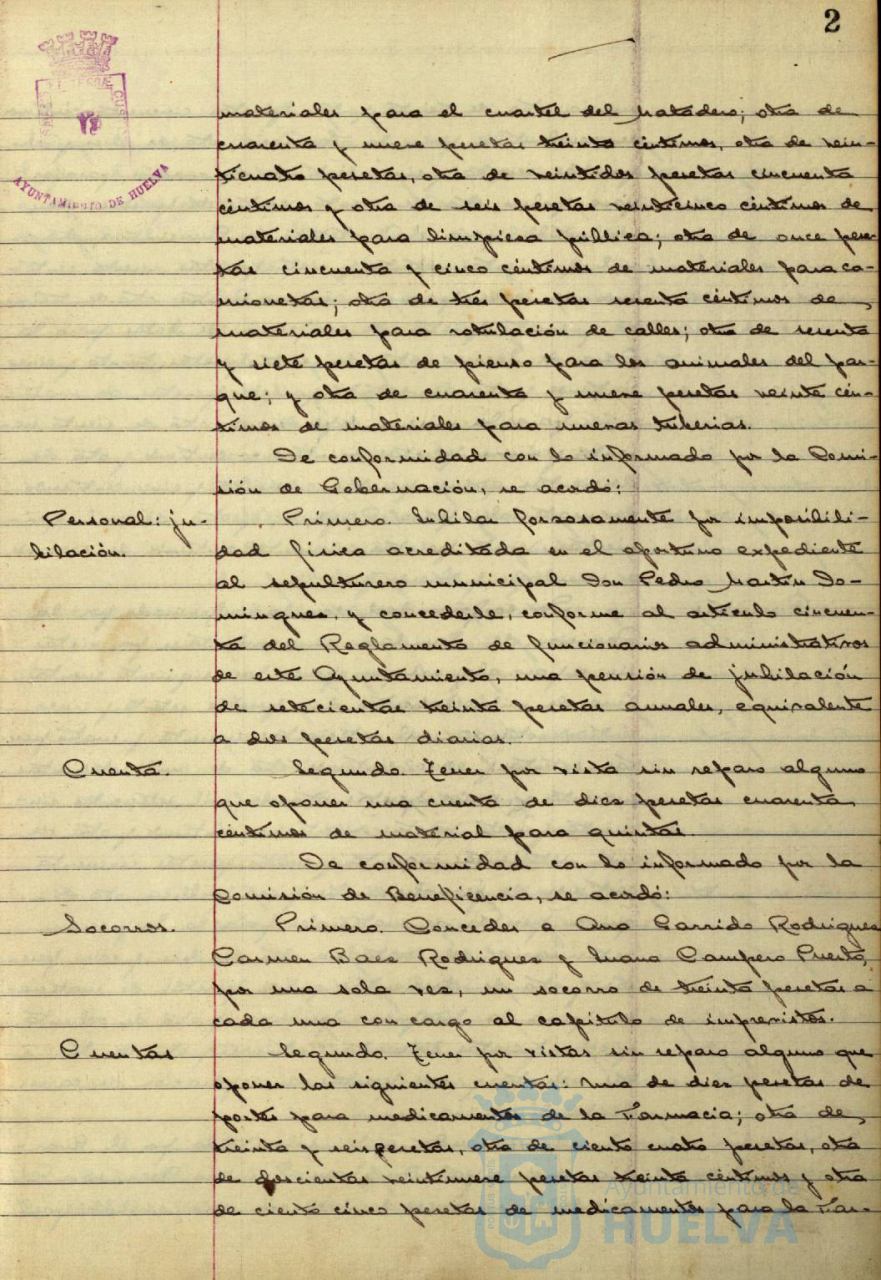 2
AYUNTAMIENTO DE HUELVA
materiales para el cuartel del Matadero; otra de
cuarenta y nueve pesetas treinta céntimos, otra de vein-
ticuatro pesetas, otra de veintidos pesetas cincuenta
céntimos y otra de seis pesetas veinticinco céntimos de
materiales para limpieza pública; otra de once pese-
tas cincuenta y cinco céntimos de materiales para ca-
mionetas; otra de tres pesetas sesenta céntimos de
materiales para rotulación de calles; otra de sesenta
y siete pesetas de pienso para los animales del par-
que; y otra de cuarenta y nueve pesetas veinte cén-
timos de materiales para nuevas tuberias.
De conformidad con lo informado por la Comi-
sión de Gobernación, se acordó:
Personal: ju-
bilación.
Primero. Jubilar forzosamente por imposibili-
dad física acreditada en el oportuno expediente
al sepulturero municipal Don Pedro Martin Do-
minguez, y concederle, conforme al artículo cincuen-
ta del Reglamento de funcionarios administrativos
de este Ayuntamiento, una pensión de jubilación
de setecientas treinta pesetas anuales, equivalente
a dos pesetas diarias.
Cuenta.
Segundo. Tener por vista sin reparo alguno
que oponer una cuenta de diez pesetas cuarenta
céntimos de material para quintas.
De conformidad con lo informado por la
Comisión de Beneficencia, se acordó:
Socorros.
Primero. Conceder a Ana Garrido Rodriguez
Carmen Baez Rodriguez y Juana Campero Puerto,
por una sola vez, un socorro de treinta pesetas a
cada una con cargo al capítulo de imprevistos.
Cuentas
Segundo. Tener por vistas sin reparo alguno que
oponer las siguientes cuentas: Una de diez pesetas de
portes para medicamentos de la Farmacia; otra de
treinta y seis pesetas, otra de ciento cuatro pesetas, otra
de doscientas veintinueve pesetas treinta céntimos y otra
de ciento cinco pesetas de medicamentos para la Far-
Ayuntamiento de
HUELVA